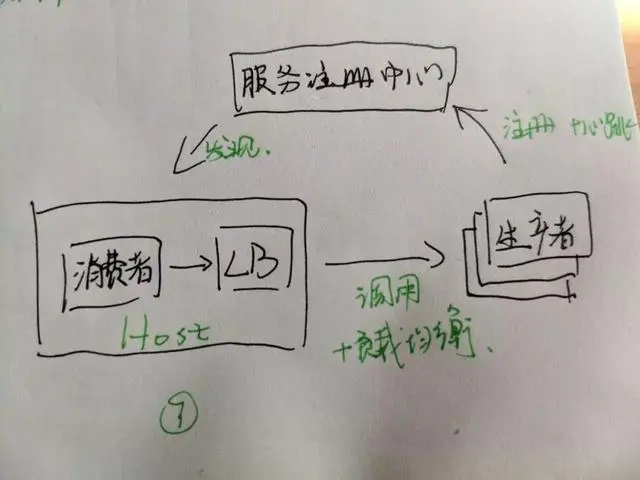 服务注册中心
发现.
注册 +心跳
消费者
LB
生产者
Host
调用
+负载均衡.
①